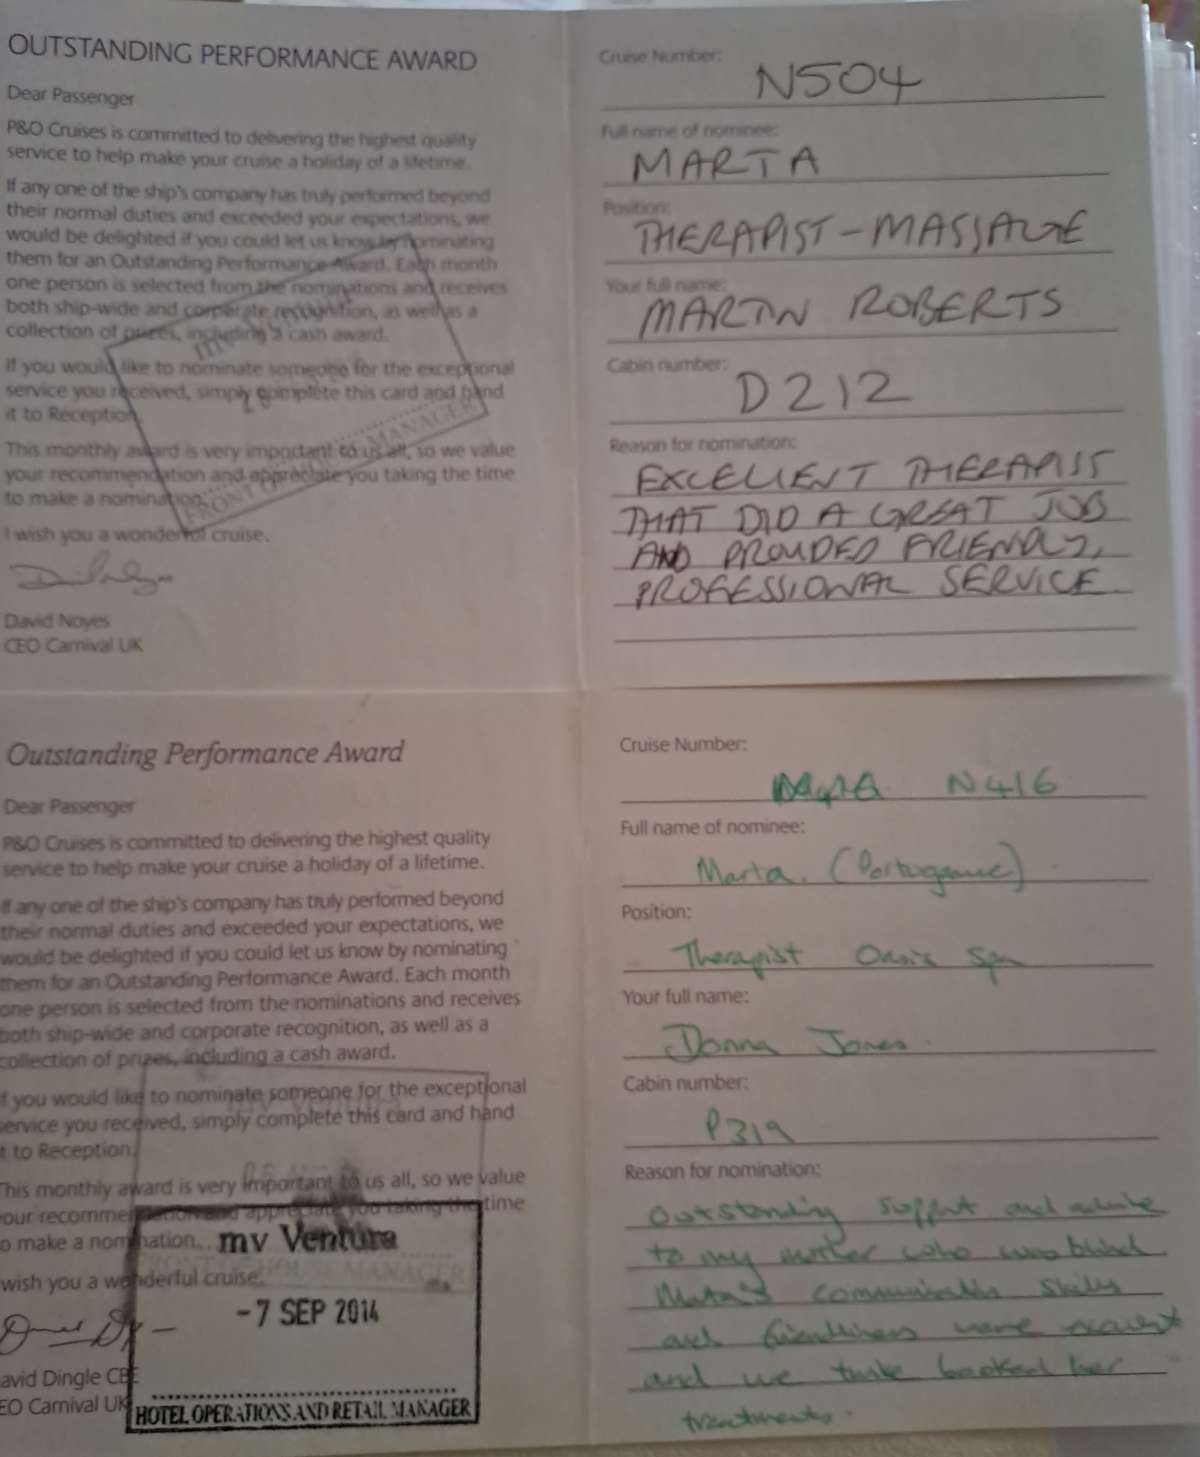 OUTSTANDING PERFORMANCE AWARD
Dear Passenger
P&O Cruises is committed to delivering the highest quality
service to help make your cruise a holiday of a lifetime.
If any one of the ship's company has truly performed beyond
their normal duties and exceeded your expectations, we
would be delighted if you could let us know by nominating
them for an Outstanding Performance Award. Each month
one person is selected from the nominations and receives
both ship-wide and corporate recognition, as well as a
collection of prizes, including a cash award.
If you would like to nominate someone for the exceptional
service you received, simply complete this card and hand
it to Reception.
This monthly award is very important to us all, so we value
your recommendation and appreciate you taking the time
to make a nomination.
I wish you a wonderful cruise.
David Noyes
CEO Carnival UK
FRONT OF MANAGER
Cruise Number:
N504
Full name of nominee:
MARTA
Position:
THERAPIST-MASSAGE
Your full name:
MARTIN ROBERTS
Cabin number:
D212
Reason for nomination:
EXCELLENT THERAPIST
THAT DID A GREAT JOB
AND PROVIDED FRIENDLY,
PROFESSIONAL SERVICE.
Outstanding Performance Award
Dear Passenger
P&O Cruises is committed to delivering the highest quality
service to help make your cruise a holiday of a lifetime.
If any one of the ship's company has truly performed beyond
their normal duties and exceeded your expectations, we
would be delighted if you could let us know by nominating
them for an Outstanding Performance Award. Each month
one person is selected from the nominations and receives
both ship-wide and corporate recognition, as well as a
collection of prizes, including a cash award.
f you would like to nominate someone for the exceptional
service you received, simply complete this card and hand
t to Reception.
This monthly award is very important to us all, so we value
our recommendation and appreciate you taking the time
o make a nomination.
wish you a wonderful cruise.
avid Dingle CBE
EO Carnival UK
FRONT OF HOUSE MANAGER
mv Ventura
-7 SEP 2014
HOTEL OPERATIONS AND RETAIL MANAGER
Cruise Number:
N416
Full name of nominee:
Marta. (Portuguese)
Position:
Therapist Oasis Spa
Your full name:
Donna Jones.
Cabin number:
P319
Reason for nomination:
Outstanding support and advice
to my mother who was blind
Marta's communication skills
and friendliness were
and we twice booked her
treatments.